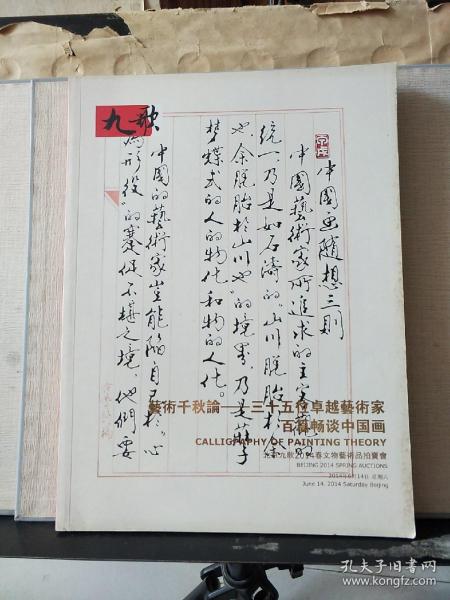 九歌
中國画随想三則
中國藝術家所追求的主客觀的
統一，乃是如石濤的“山川脱胎於余
也，余脱胎於山川也”的境界，乃是莊子
梦蝶式的人的物化和物的人化。
中國的藝術家豈能陷自己於“心
為形役”的蹇促不堪之境，他們要
藝術千秋論——三十五位卓越藝術家
百幅畅谈中国画
CALLIGRAPHY OF PAINTING THEORY
北京九歌2014春文物藝術品拍賣會
BEIJING 2014 SPRING AUCTIONS
2014年6月14日 星期六
June 14, 2014 Saturday Beijing
孔夫子旧书网
www.kongfz.com